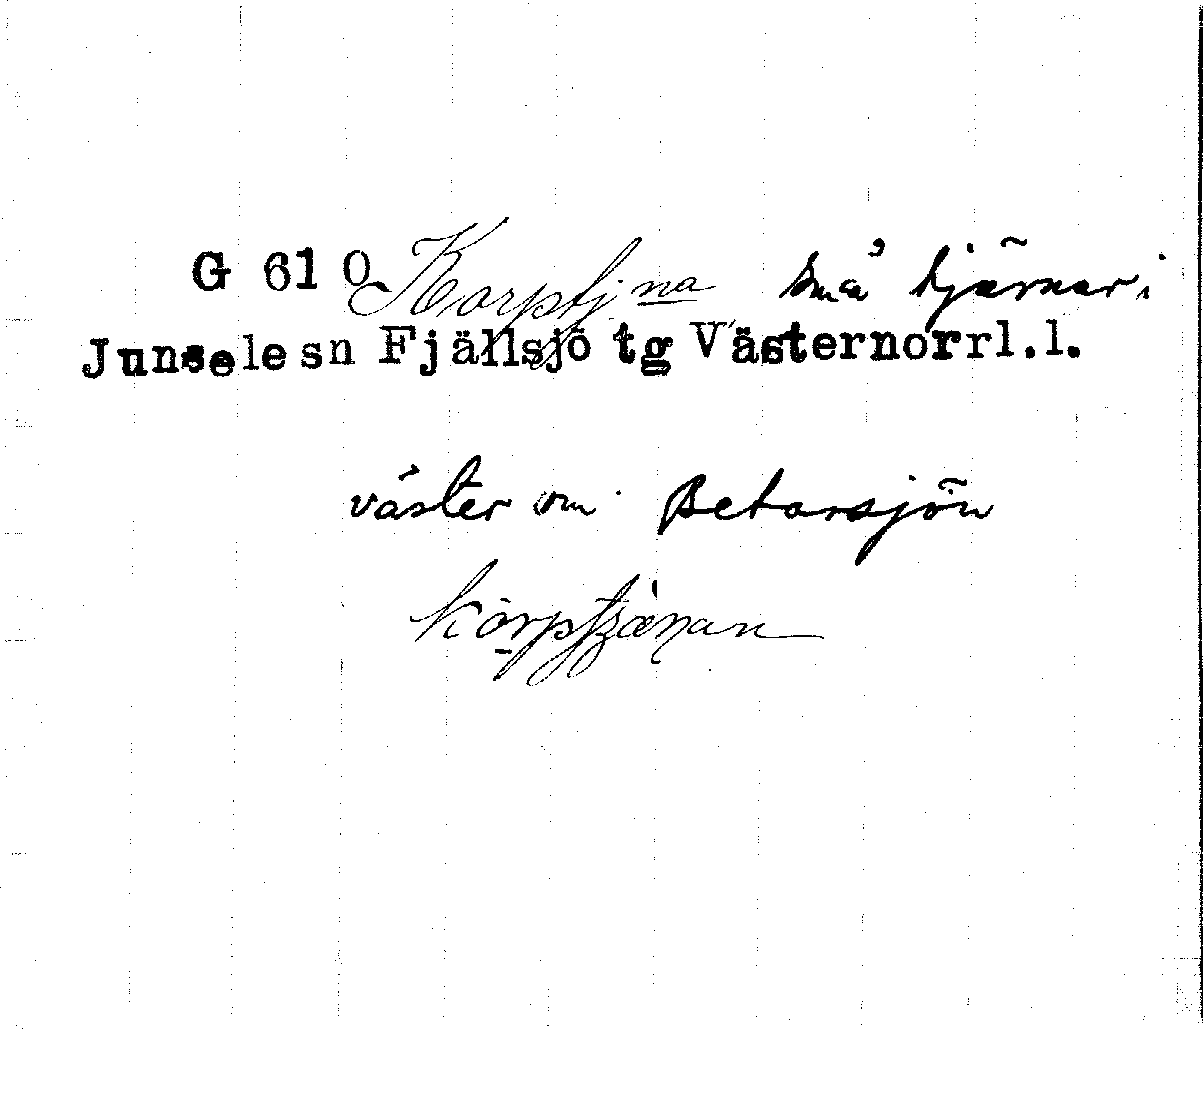 G 61 0 Korptjna små tjärnar i
Junsele sn Fjällsjö tg Västernorrl.l.
väster om Betarsjön
kòrptʒὰnan